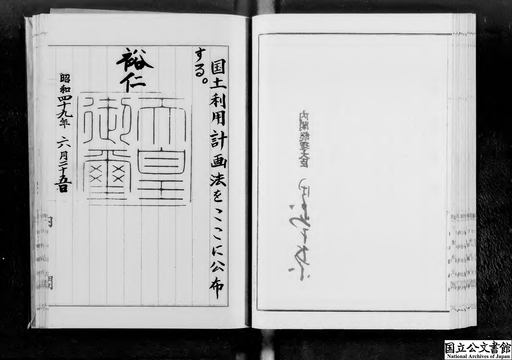 国土利用計画法をここに公布
する。
裕仁
天皇
御璽
昭和四十九年 六月二十五日
内閣
内閣総理大臣
国立公文書館
National Archives of Japan